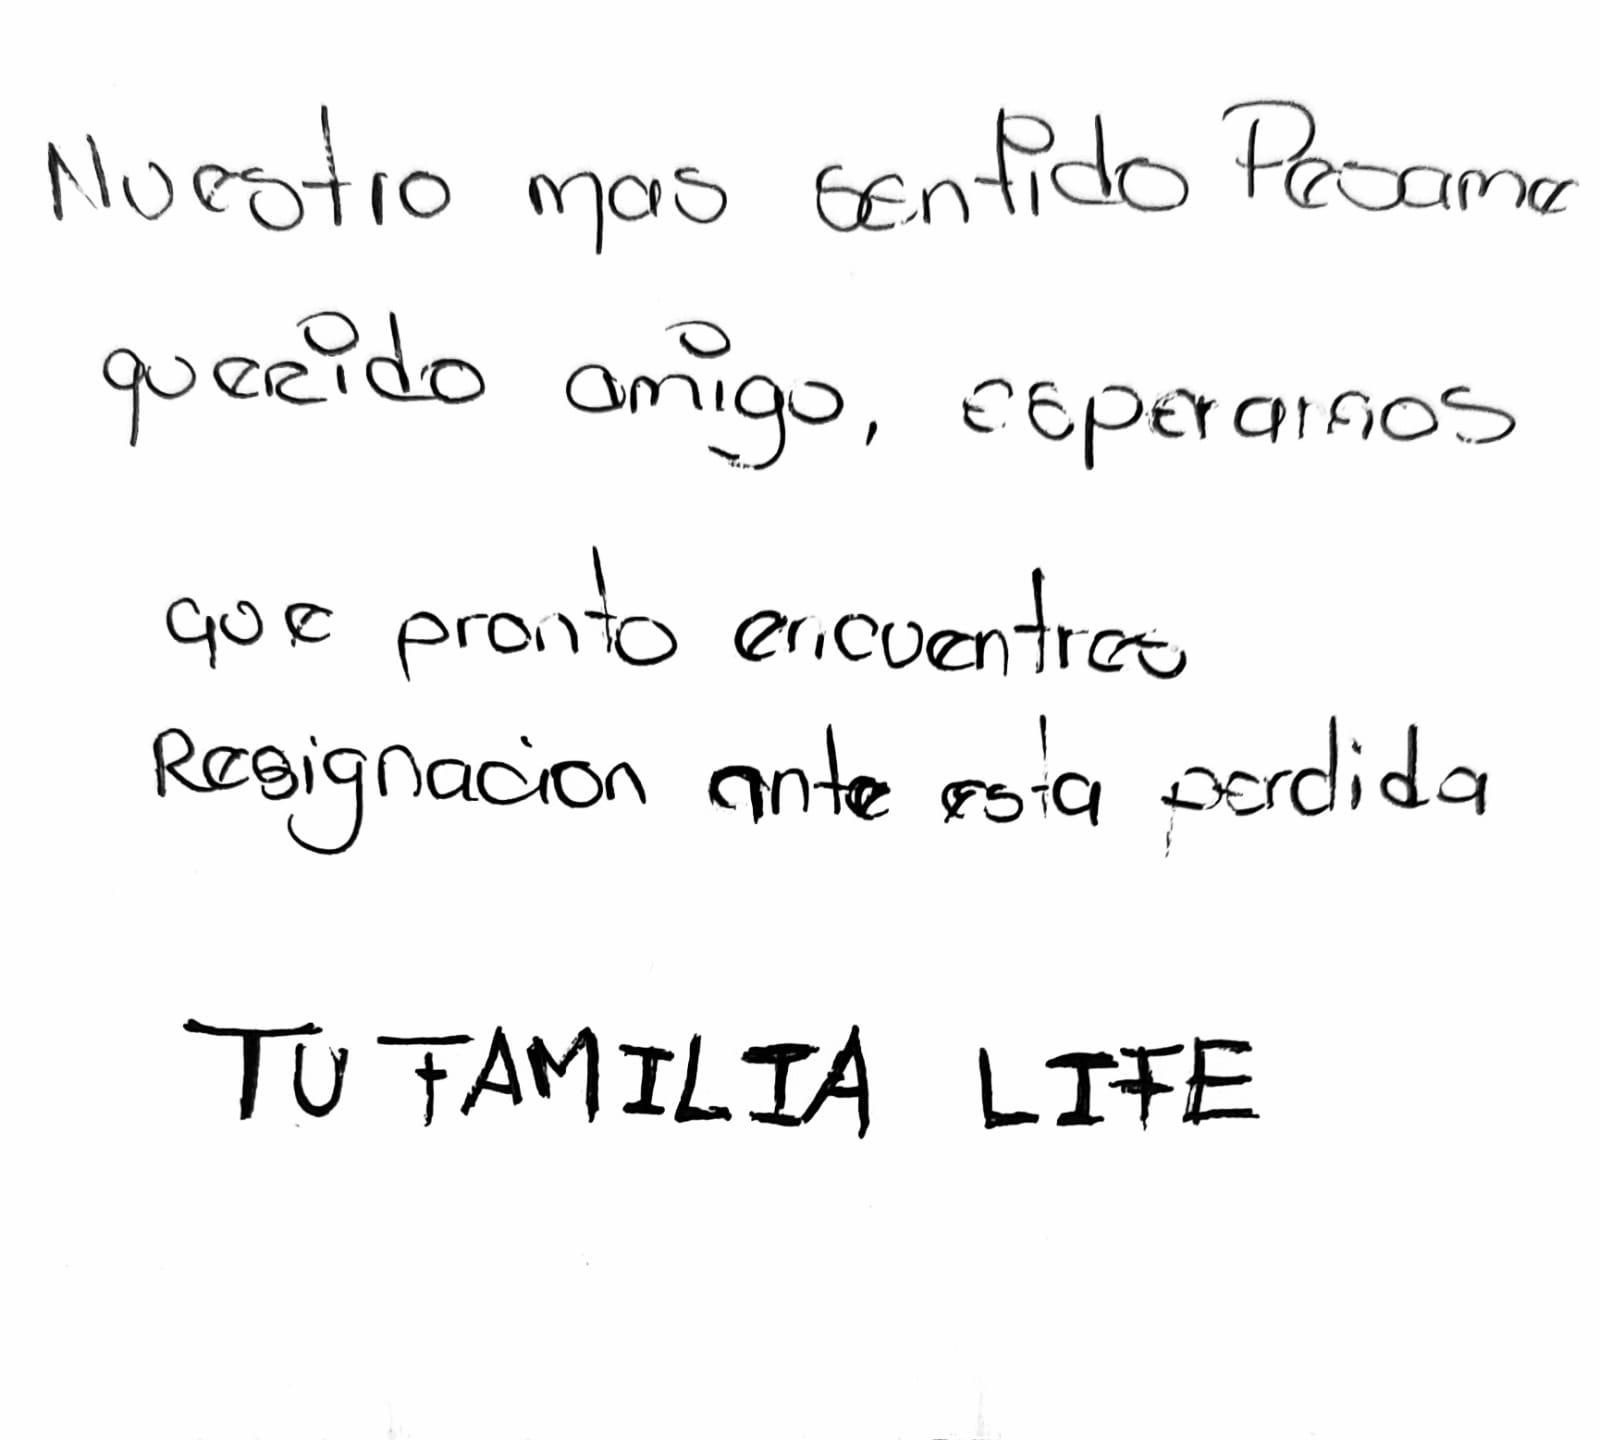 Nuestro mas sentido Pesame
querido amigo, esperamos
que pronto encuentres
Resignacion ante esta perdida
TU FAMILIA LIFE